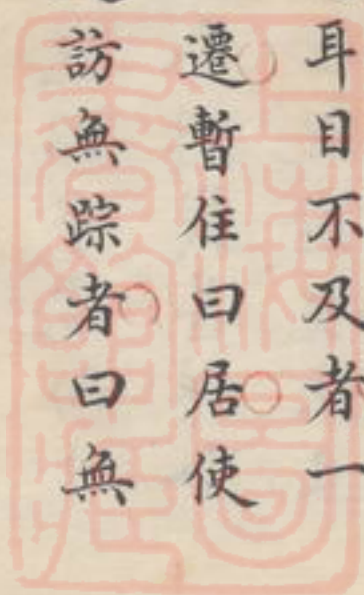 耳目不及者一
遷暫住曰居使
訪無踪者曰無